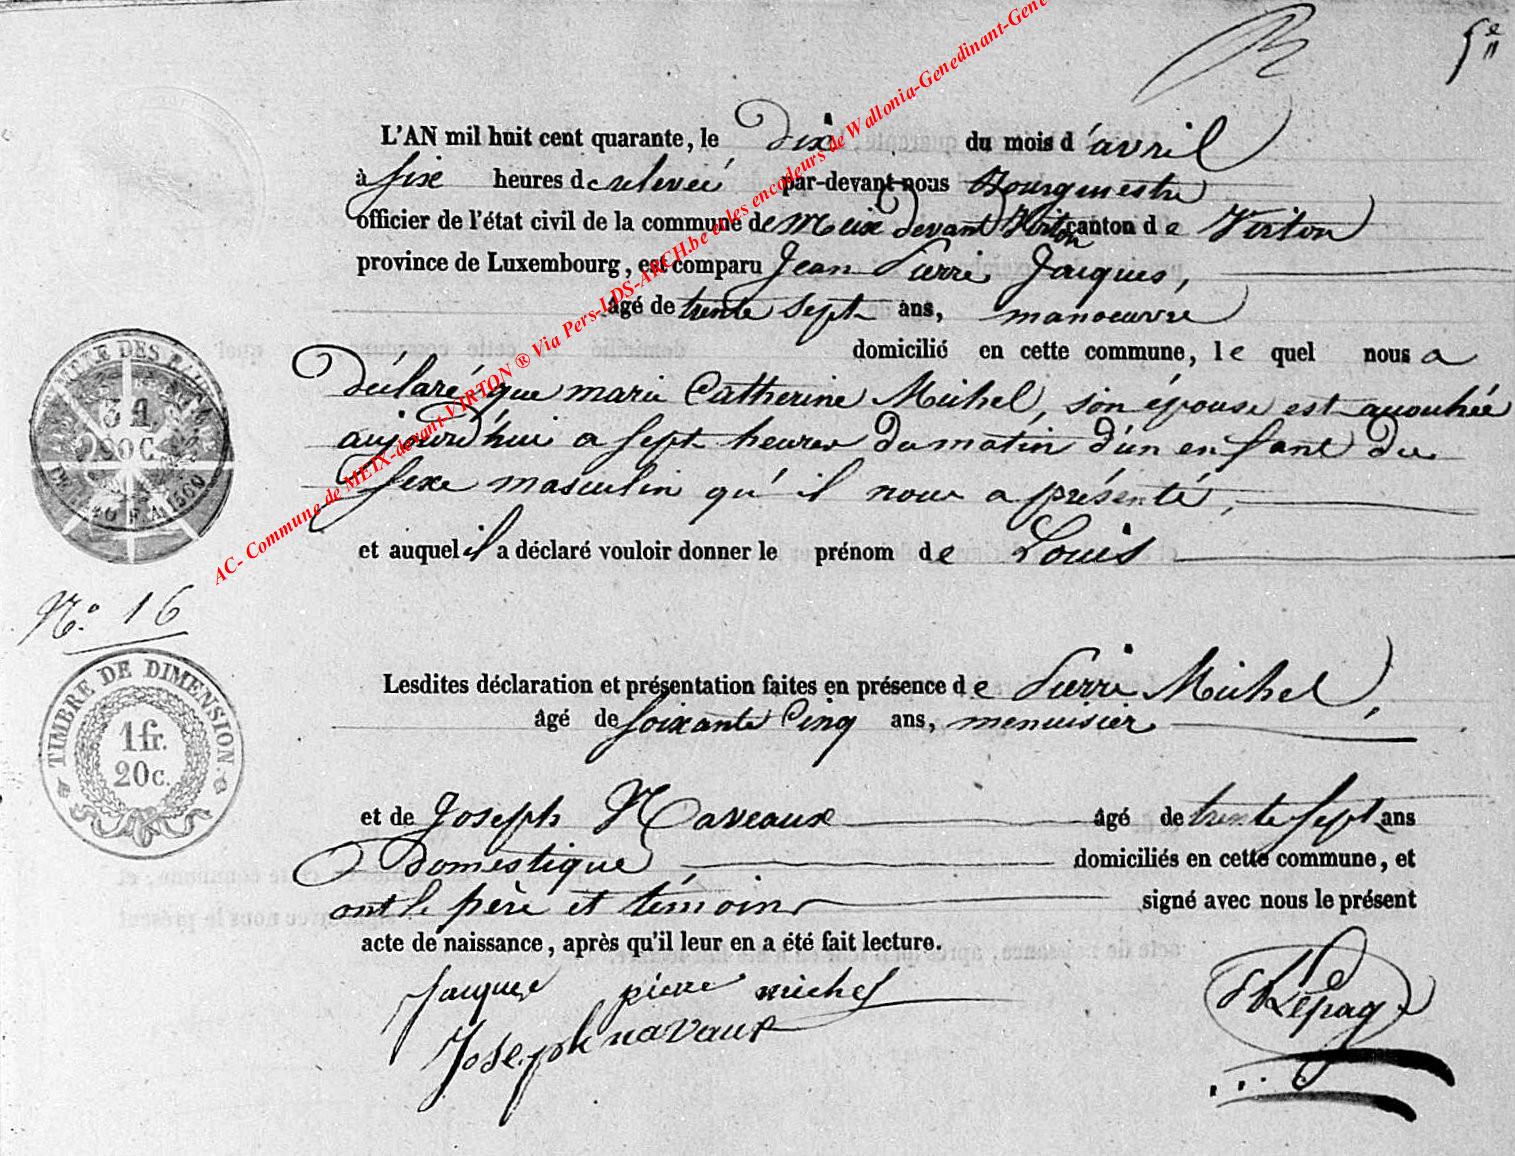 5e
L'AN mil huit cent quarante, le dix du mois d'avril
à six heures de relevée par-devant nous Bourgmestre
officier de l'état civil de la commune de Meix devant Virton canton de Virton
province de Luxembourg, est comparu Jean Pierre Jacques,
âgé de trente sept ans, manoeuvre
domicilié en cette commune, le quel nous a
Déclaré que marie Catherine Michel, son épouse est accouchée
aujourd'hui a sept heures du matin d'un enfant du
sexe masculin qu'il nous a présenté,
et auquel il a déclaré vouloir donner le prénom de Louis
N.° 16
TIMBRE DE DIMENSION.
1 fr.
20 c.
Lesdites déclaration et présentation faites en présence de Pierre Michel,
âgé de soixante Cinq ans, menuisier
et de Joseph Naveaux âgé de trente sept ans
Domestique, domiciliés en cette commune, et
ont le père et témoins signé avec nous le présent
acte de naissance, après qu'il leur en a été fait lecture.
Jacques pierre michel
Joseph navaux
Lepage
AC- Commune de MEIX-devant-VIRTON ® Via Pers-LDS-ARCH.be et les encodeurs de Wallonia-Genedinant-Gene